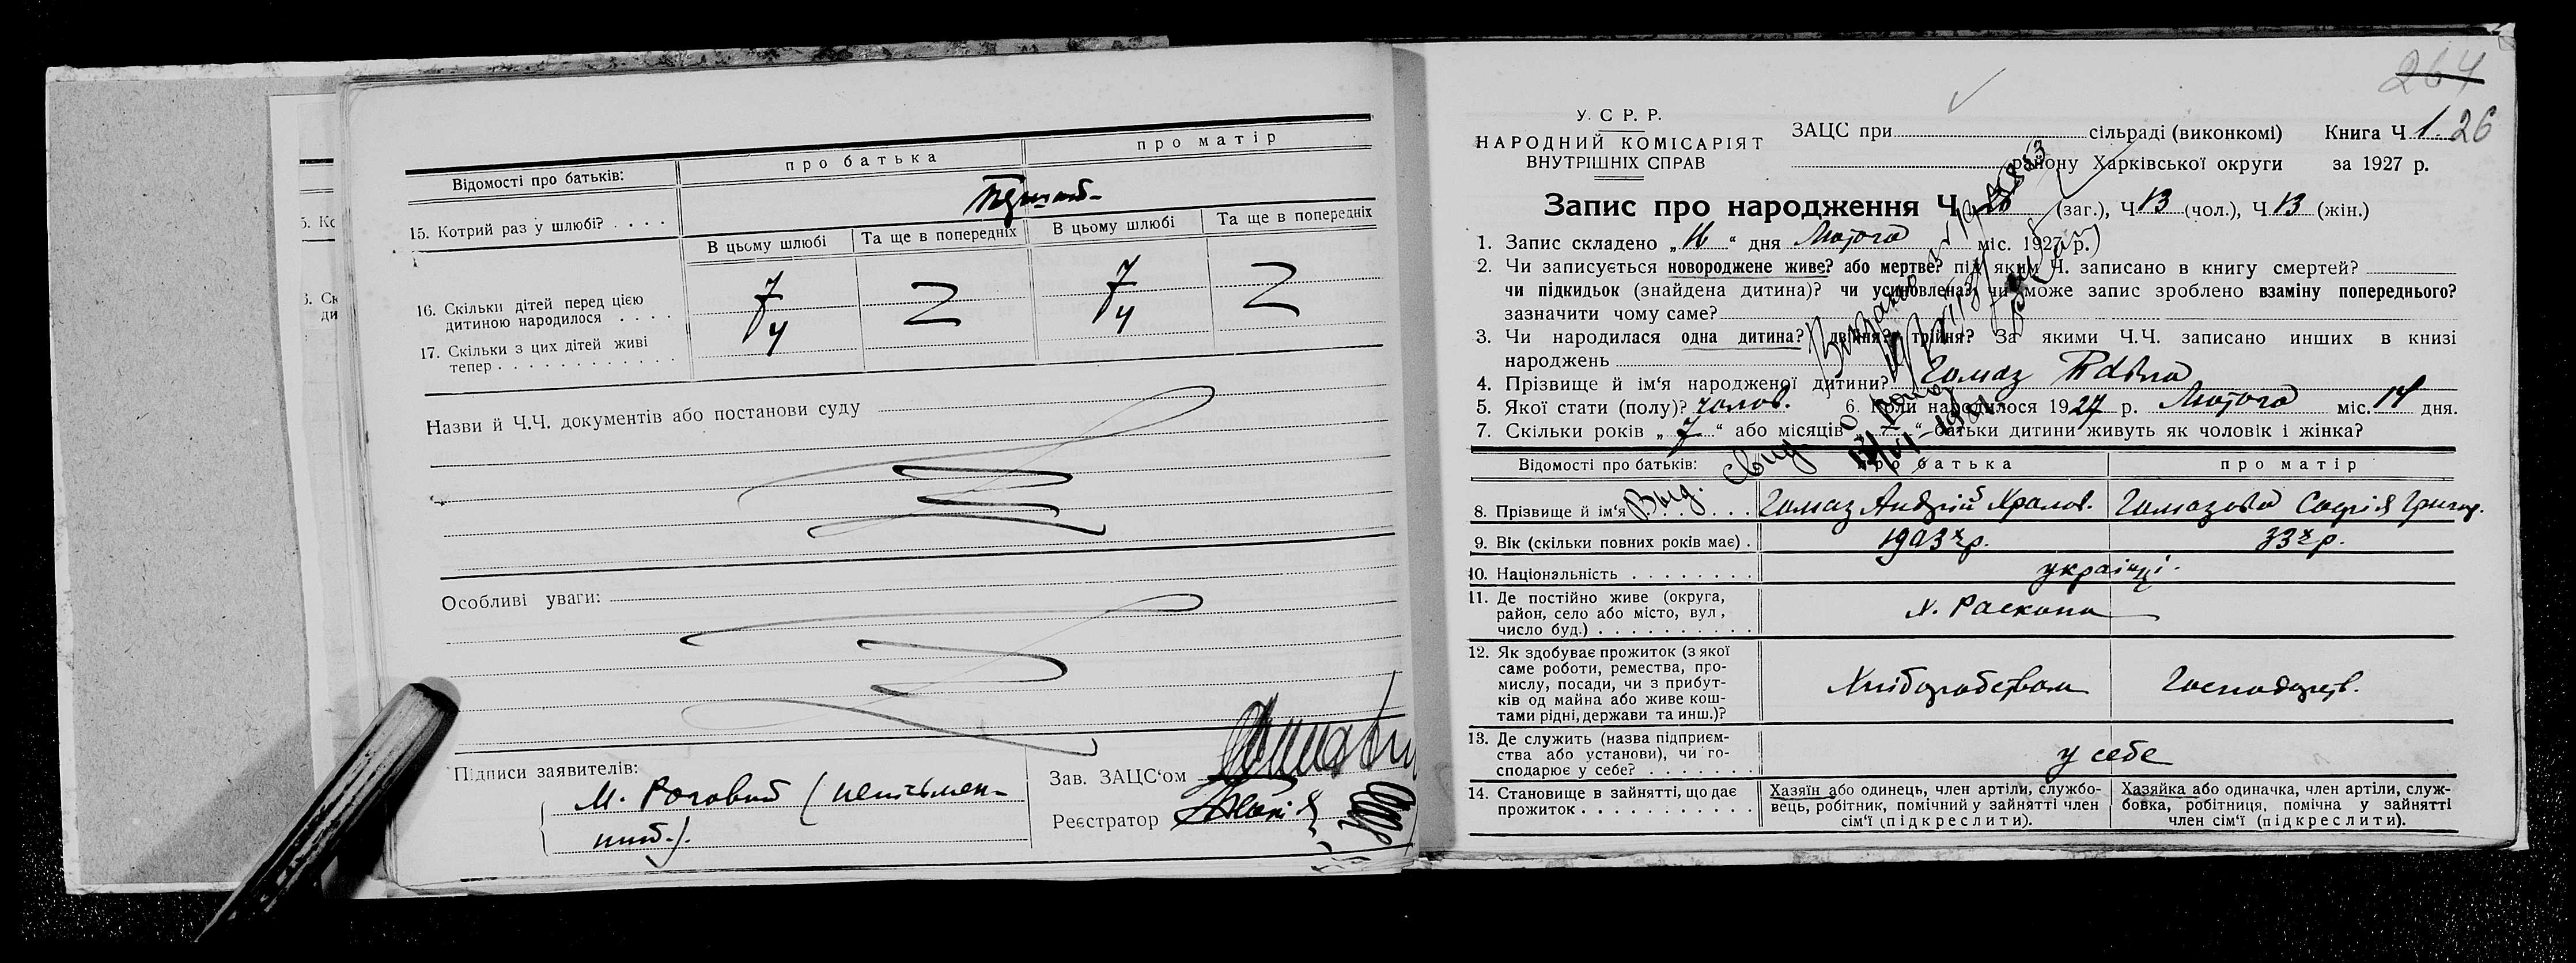 Відомості про батьків:
про батька
про матір
15. Котрий раз у шлюбі? . . . .
В цьому шлюбі
Та ще в попередніх
В цьому шлюбі
Та ще в попередніх
16. Скільки дітей перед цією
дитиною народилося . . . .
7
7
17. Скільки з цих дітей живі
тепер . . . . . . . . . . .
4
4
Назви й Ч.Ч. документів або постанови суду
Особливі уваги:
Підписи заявителів:
М. Роговий (неписьмен-
ний).
Зав. ЗАЦС'ом
Реєстратор
264
У. С. Р. Р.
НАРОДНИЙ КОМІСАРІЯТ
ВНУТРІШНІХ СПРАВ
ЗАЦС при сільраді (виконкомі) Книга Ч 1. 26
району Харківської округи за 1927 р.
Запис про народження Ч 26 (заг.), Ч 13 (чол.), Ч 13 (жін.)
1. Запис складено „ “ дня Лютого міс. 1927 р.)
2. Чи записується новороджене живе? або мертве? під яким Ч. записано в книгу смертей?
чи підкидьок (знайдена дитина)? чи усиновлена? чи може запис зроблено взаміну попереднього?
зазначити чому саме?
3. Чи народилася одна дитина? двійня? трійня? За якими Ч.Ч. записано инших в книзі
народжень
4. Прізвище й ім'я народженої дитини? Гамаз
5. Якої стати (полу)? чолов. 6. Коли народилося 1927 р. Лютого міс. 14 дня.
7. Скільки років „ 7 “ або місяців „ “ батьки дитини живуть як чоловік і жінка?
Відомості про батьків:
про батька
про матір
8. Прізвище й ім'я . . . Гамаз Андрій Гамазова Софія Григор.
9. Вік (скільки повних років має) . 1903 р. 33 р.
10. Національність . . . . . . . . українці.
11. Де постійно живе (округа,
район, село або місто, вул,
число буд.) . . . . . . . . . .
х. Раскопа
12. Як здобуває прожиток (з якої
саме роботи, ремества, про-
мислу, посади, чи з прибут-
ків од майна або живе кош-
тами рідні, держави та инш.)?
Хліборобством
Господарств.
13. Де служить (назва підприєм-
ства або установи), чи го-
сподарює у себе? . . . . . . .
у себе
14. Становище в зайнятті, що дає
прожиток . . . . . . . . . . .
Хазяїн або одинець, член артіли, службо-
вець, робітник, помічний у зайнятті член
сім'ї (підкреслити).
Хазяйка або одиначка, член артіли, служ-
бовка, робітниця, помічна у зайнятті
член сім'ї (підкреслити).